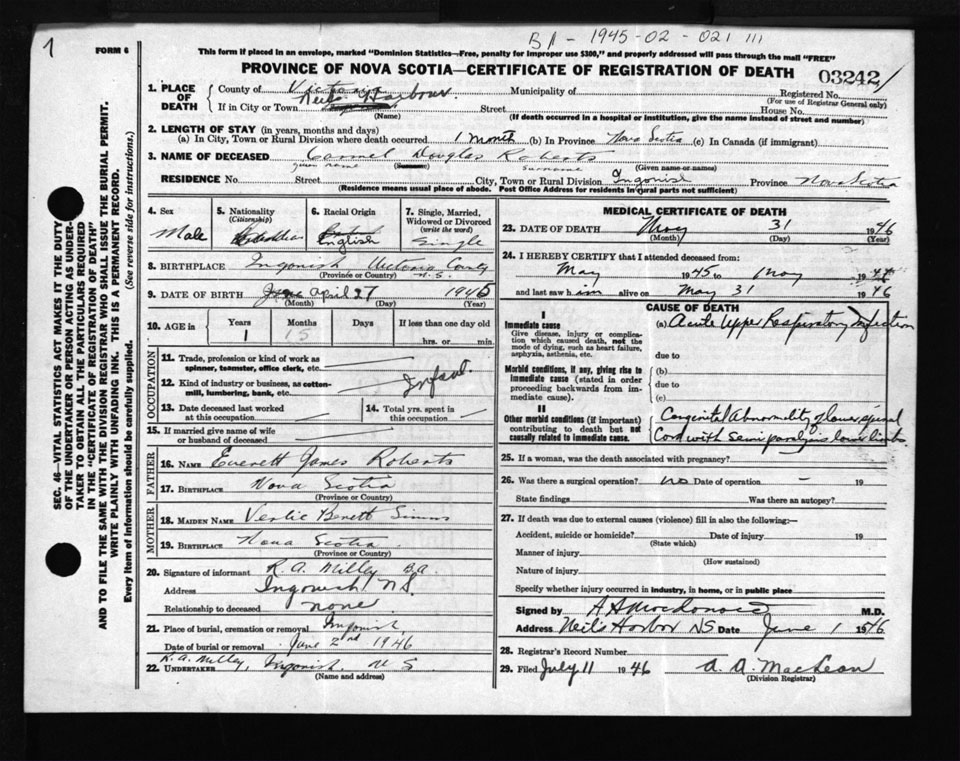 1
BA - 1945-02-021111
FORM 6
This form if placed in an envelope, marked "Dominion Statistics—Free, penalty for improper use $300," and properly addressed will pass through the mail "FREE"
PROVINCE OF NOVA SCOTIA—CERTIFICATE OF REGISTRATION OF DEATH
03242
SEC. 46—VITAL STATISTICS ACT MAKES IT THE DUTY
OF THE UNDERTAKER OR PERSON ACTING AS UNDER-
TAKER TO OBTAIN ALL THE PARTICULARS REQUIRED
IN THE "CERTIFICATE OF REGISTRATION OF DEATH"
AND TO FILE THE SAME WITH THE DIVISION REGISTRAR WHO SHALL ISSUE THE BURIAL PERMIT.
WRITE PLAINLY WITH UNFADING INK. THIS IS A PERMANENT RECORD.
Every item of information should be carefully supplied. (See reverse side for instructions.)
1. PLACE OF DEATH
County of Victoria Municipality of Registered No.
(For use of Registrar General only)
If in City or Town Neils Harbour Street House No.
(Name) (If death occurred in a hospital or institution, give the name instead of street and number)
2. LENGTH OF STAY (in years, months and days)
(a) In City, Town or Rural Division where death occurred 1 Month (b) In Province Nova Scotia (c) In Canada (if immigrant)
3. NAME OF DECEASED Carmel Douglas Roberts
given name (Surname) Surname (Given name or names)
RESIDENCE No. Street City, Town or Rural Division Ingonish Province Nova Scotia
(Residence means usual place of abode. Post Office Address for residents in rural parts not sufficient)
4. Sex Male
5. Nationality (Citizenship)
6. Racial Origin English
7. Single, Married, Widowed or Divorced (write the word) Single
8. BIRTHPLACE Ingonish Victoria County N.S.
(Province or Country)
9. DATE OF BIRTH April 27 1945
(Month) (Day) (Year)
10. AGE in Years Months Days If less than one day old
1 5 hrs. or min.
OCCUPATION
11. Trade, profession or kind of work as spinner, teamster, office clerk, etc.
12. Kind of industry or business, as cotton-mill, lumbering, bank, etc. Infant
13. Date deceased last worked at this occupation
14. Total yrs. spent in this occupation
15. If married give name of wife or husband of deceased
FATHER
16. NAME Everett James Roberts
17. BIRTHPLACE Nova Scotia
(Province or Country)
MOTHER
18. MAIDEN NAME Simms
19. BIRTHPLACE Nova Scotia
(Province or Country)
20. Signature of informant R. A. Milley B.A.
Address Ingonish N.S.
Relationship to deceased none
21. Place of burial, cremation or removal Ingonish
Date of burial or removal June 2nd 1946
22. UNDERTAKER R. A. Milley, Ingonish. N S
(Name and address)
MEDICAL CERTIFICATE OF DEATH
23. DATE OF DEATH May 31 1946
(Month) (Day) (Year)
24. I HEREBY CERTIFY that I attended deceased from:
May 1945 to May 19
and last saw him alive on May 31 1946
CAUSE OF DEATH
I
Immediate cause
Give disease, injury or complication which caused death, not the mode of dying, such as heart failure, asphyxia, asthenia, etc.
(a) Acute Upper Respiratory Infection
due to
Morbid conditions, if any, giving rise to immediate cause (stated in order proceeding backwards from immediate cause)
(b)
due to
(c)
II
Other morbid conditions (if important) contributing to death but not causally related to immediate cause.
Congenital Abnormality of lower spinal
Cord with semi paralysis lower limbs.
25. If a woman, was the death associated with pregnancy?
26. Was there a surgical operation? no Date of operation - 19
State findings Was there an autopsy?
27. If death was due to external causes (violence) fill in also the following:—
Accident, suicide or homicide? Date of injury 19
(State which)
Manner of injury
(How sustained)
Nature of injury
Specify whether injury occurred in industry, in home, or in public place
Signed by A A Macdonald M.D.
Address Neil's Harbor NS Date June 1 1946
28. Registrar's Record Number
29. Filed July 11 1946 A. A. MacLean
(Division Registrar)